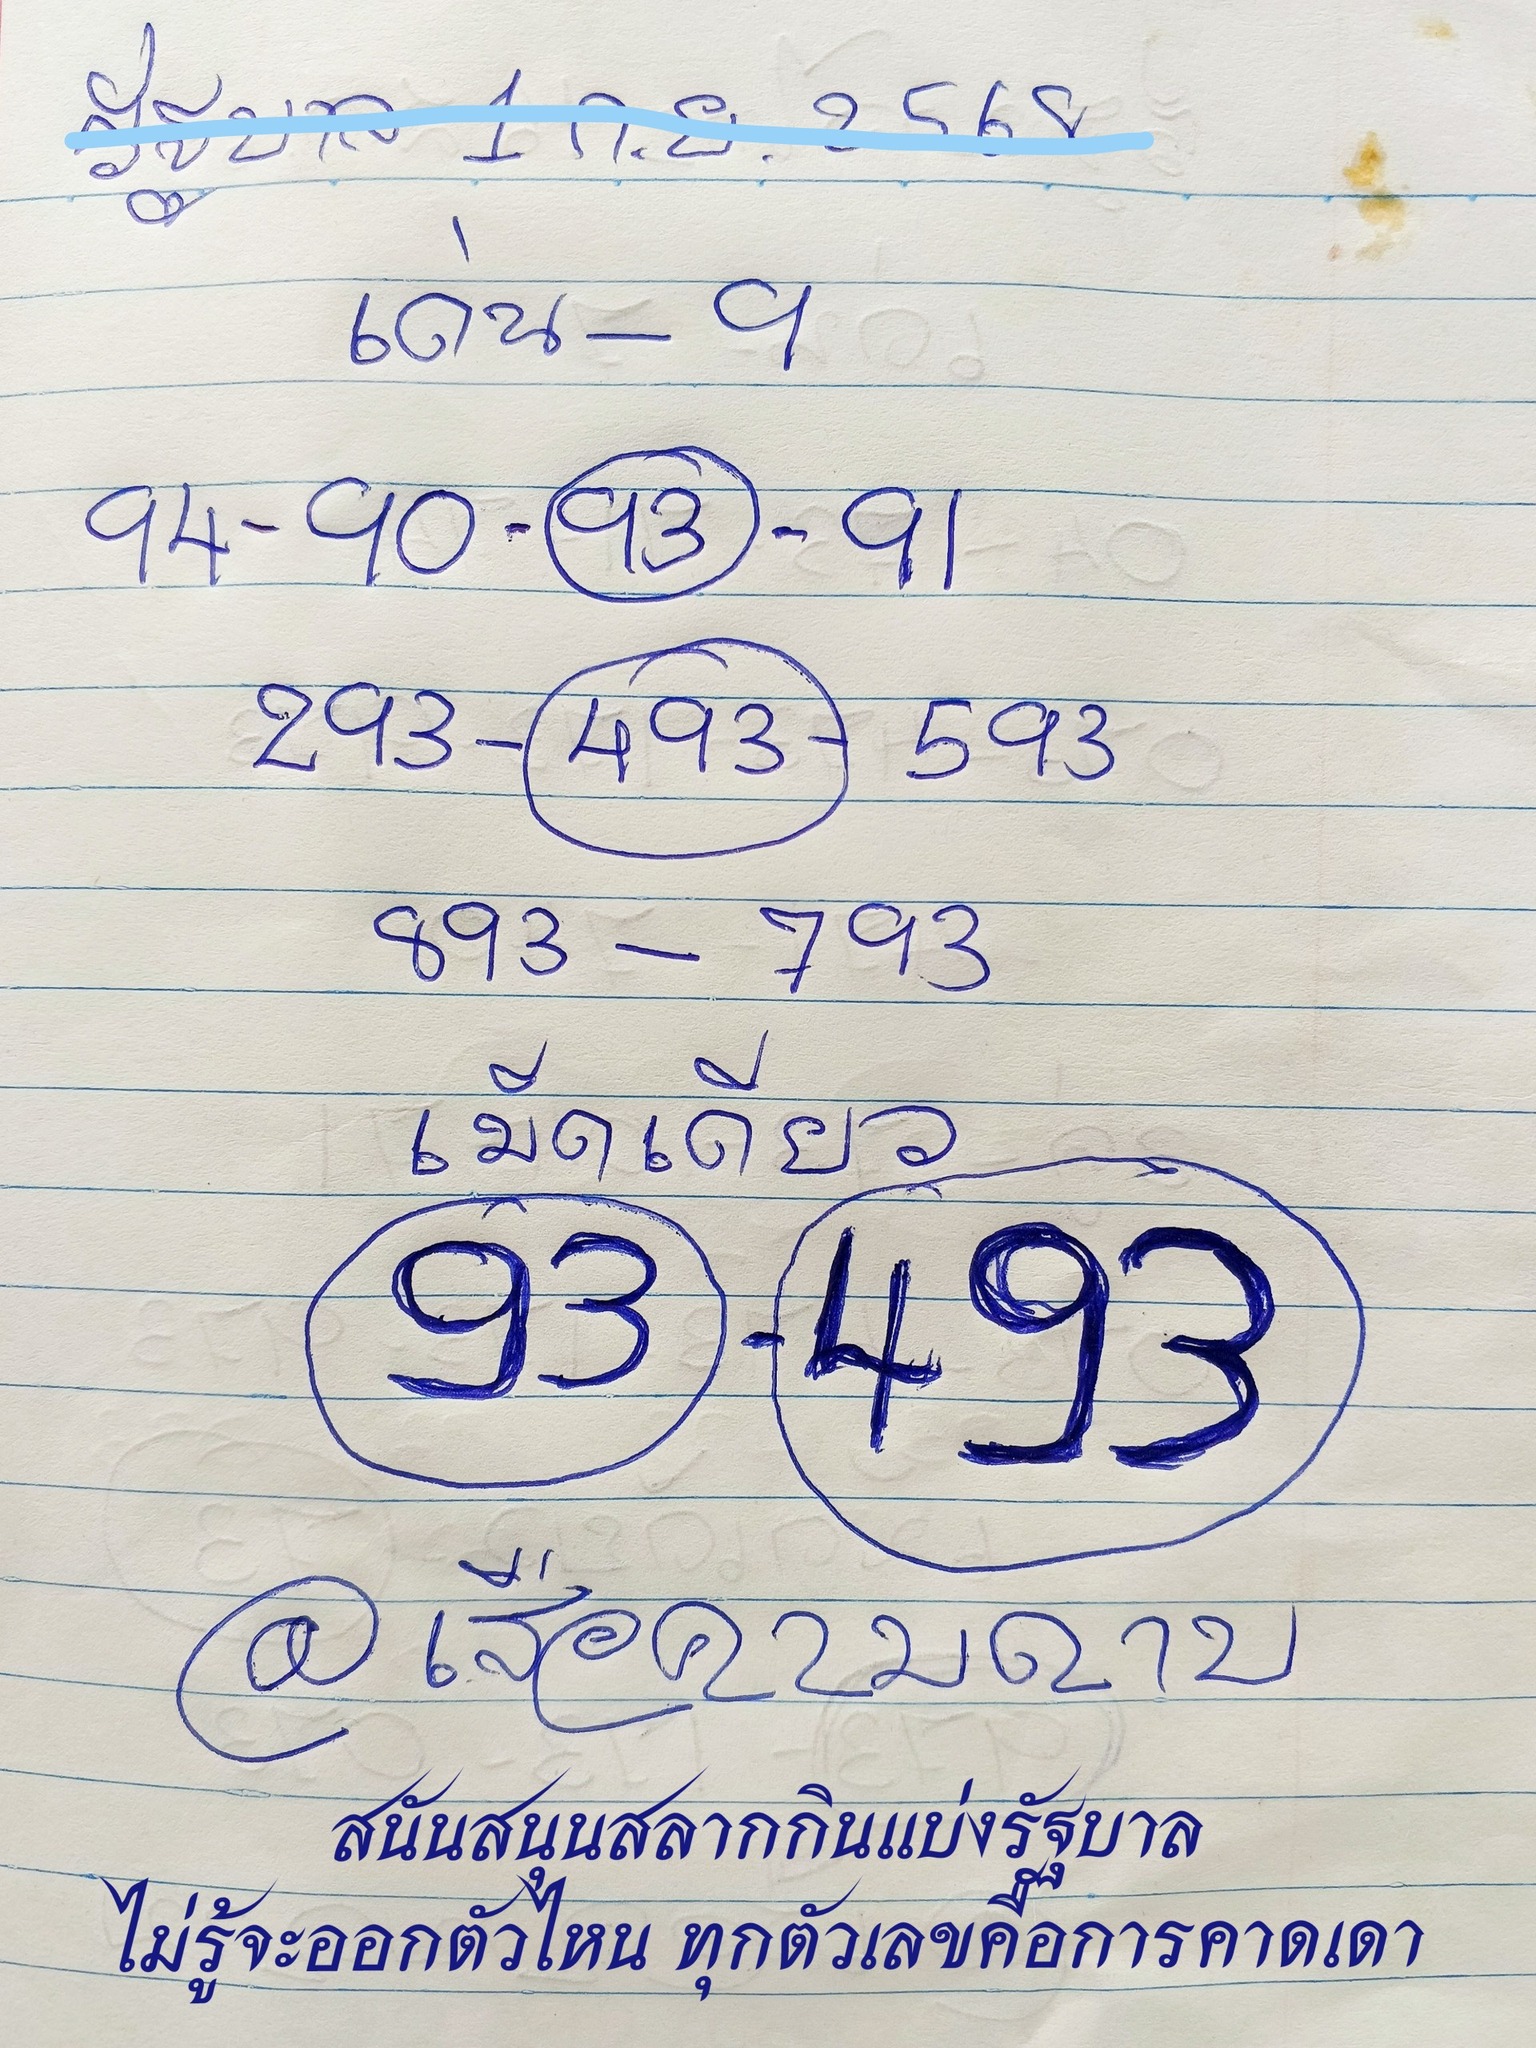 รัฐบาล 1 ก.ย. 2568
เด่น – 9
94 - 90 - 93 - 91
293 - 493 - 593
893 – 793
เม็ดเดียว
93 - 493
@ เสือคามดาบ
สนันสนุนสลากกินแบ่งรัฐบาล
ไม่รู้จะออกตัวไหน ทุกตัวเลขคือการคาดเดา